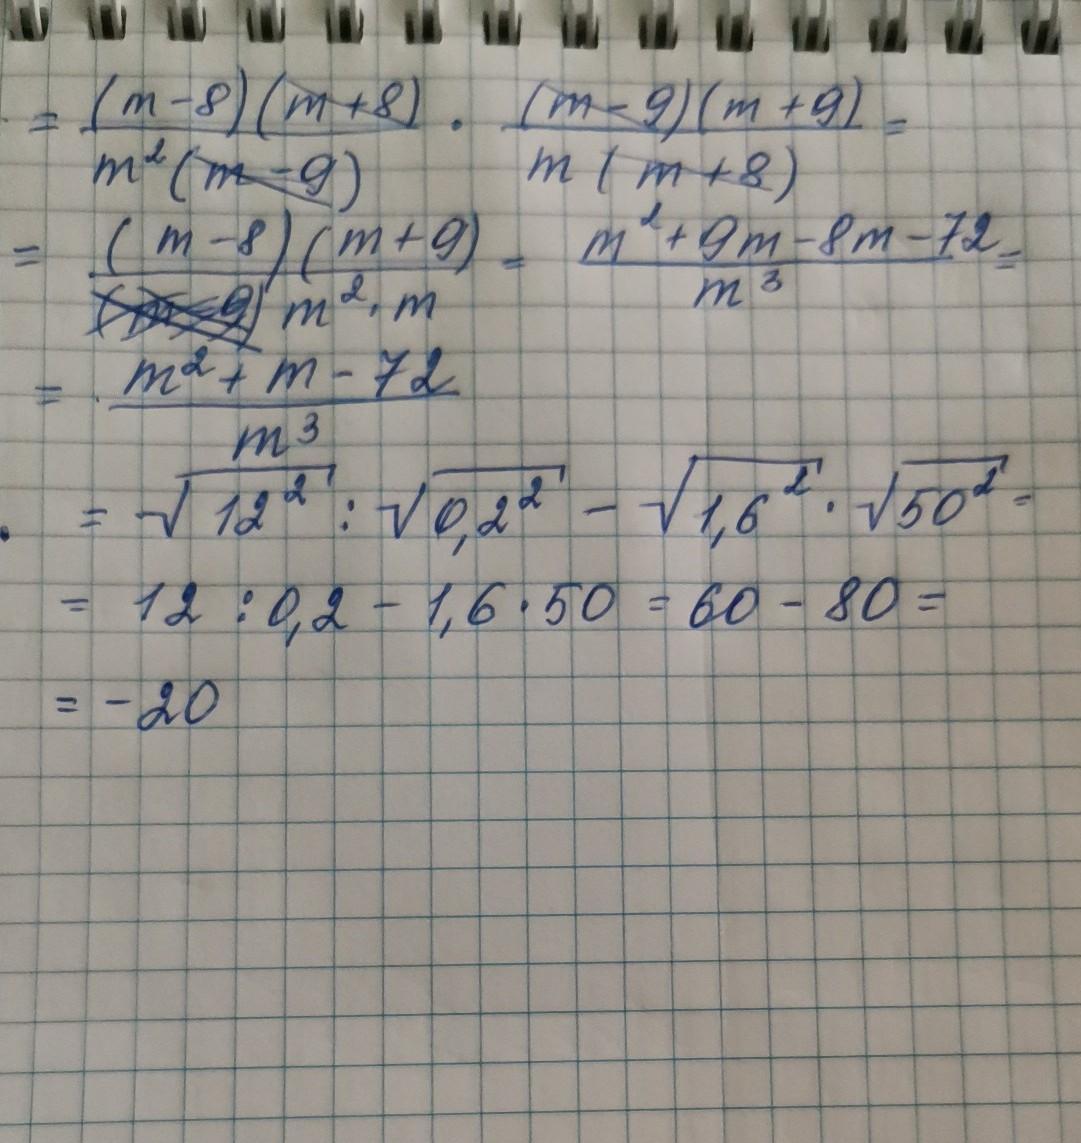 = (m-8)(m+8) / m²(m-9) · (m-9)(m+9) / m(m+8) =
= (m-8)(m+9) / (m-9) m²·m = m²+9m-8m-72 / m³ =
= m²+m-72 / m³
. = √12² : √0,2² - √1,6² · √50² =
= 12 : 0,2 - 1,6·50 = 60 - 80 =
= -20